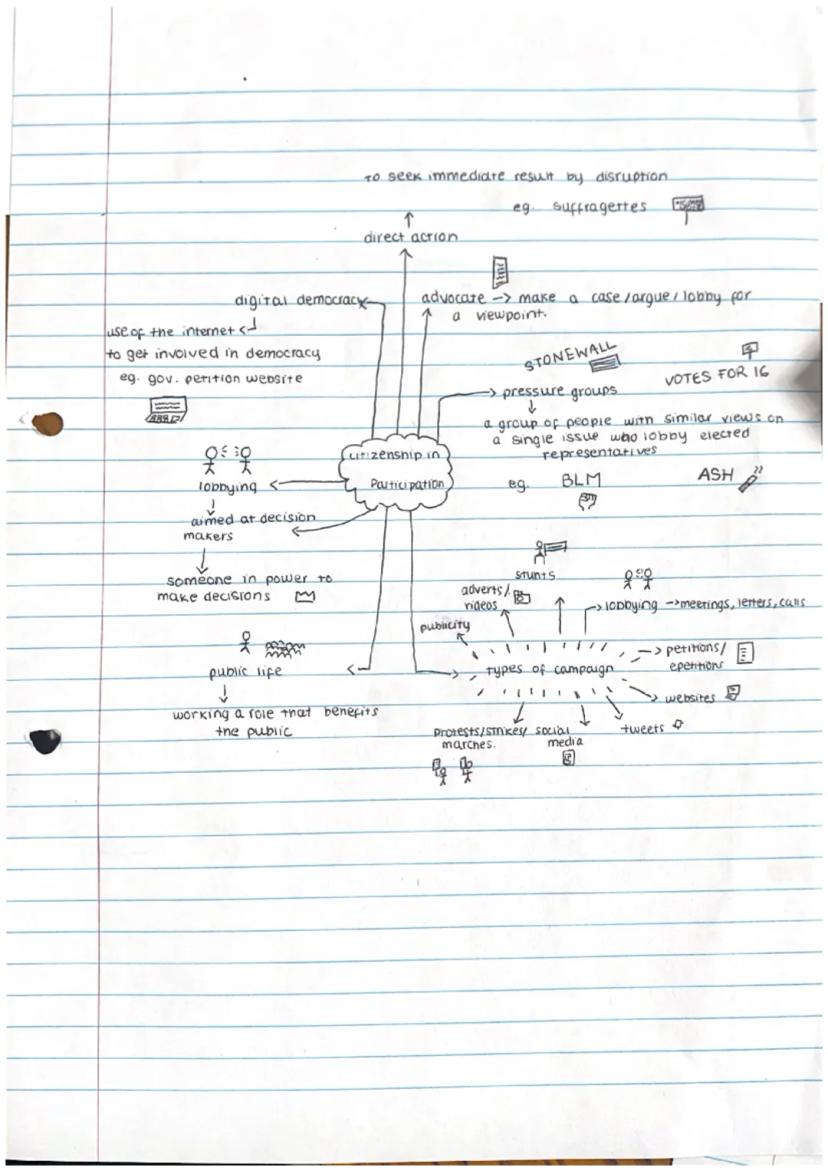 to seek immediate result by disruption
eg. suffragettes
direct action
digital democracy
use of the internet
to get involved in democracy
eg. gov. petition website
advocate -> make a case/argue/lobby for
a viewpoint.
STONEWALL
VOTES FOR 16
pressure groups
a group of people with similar views on
a single issue who lobby elected
representatives
eg. BLM
ASH
citizenship in
Participation
lobbying
aimed at decision
makers
someone in power to
make decisions
public life
working a role that benefits
the public
stunts
adverts/
videos
publicity
lobbying -> meetings, letters, calls
types of campaign
petitions/
epetitions
websites
tweets
social
media
protests/strikes/
marches.